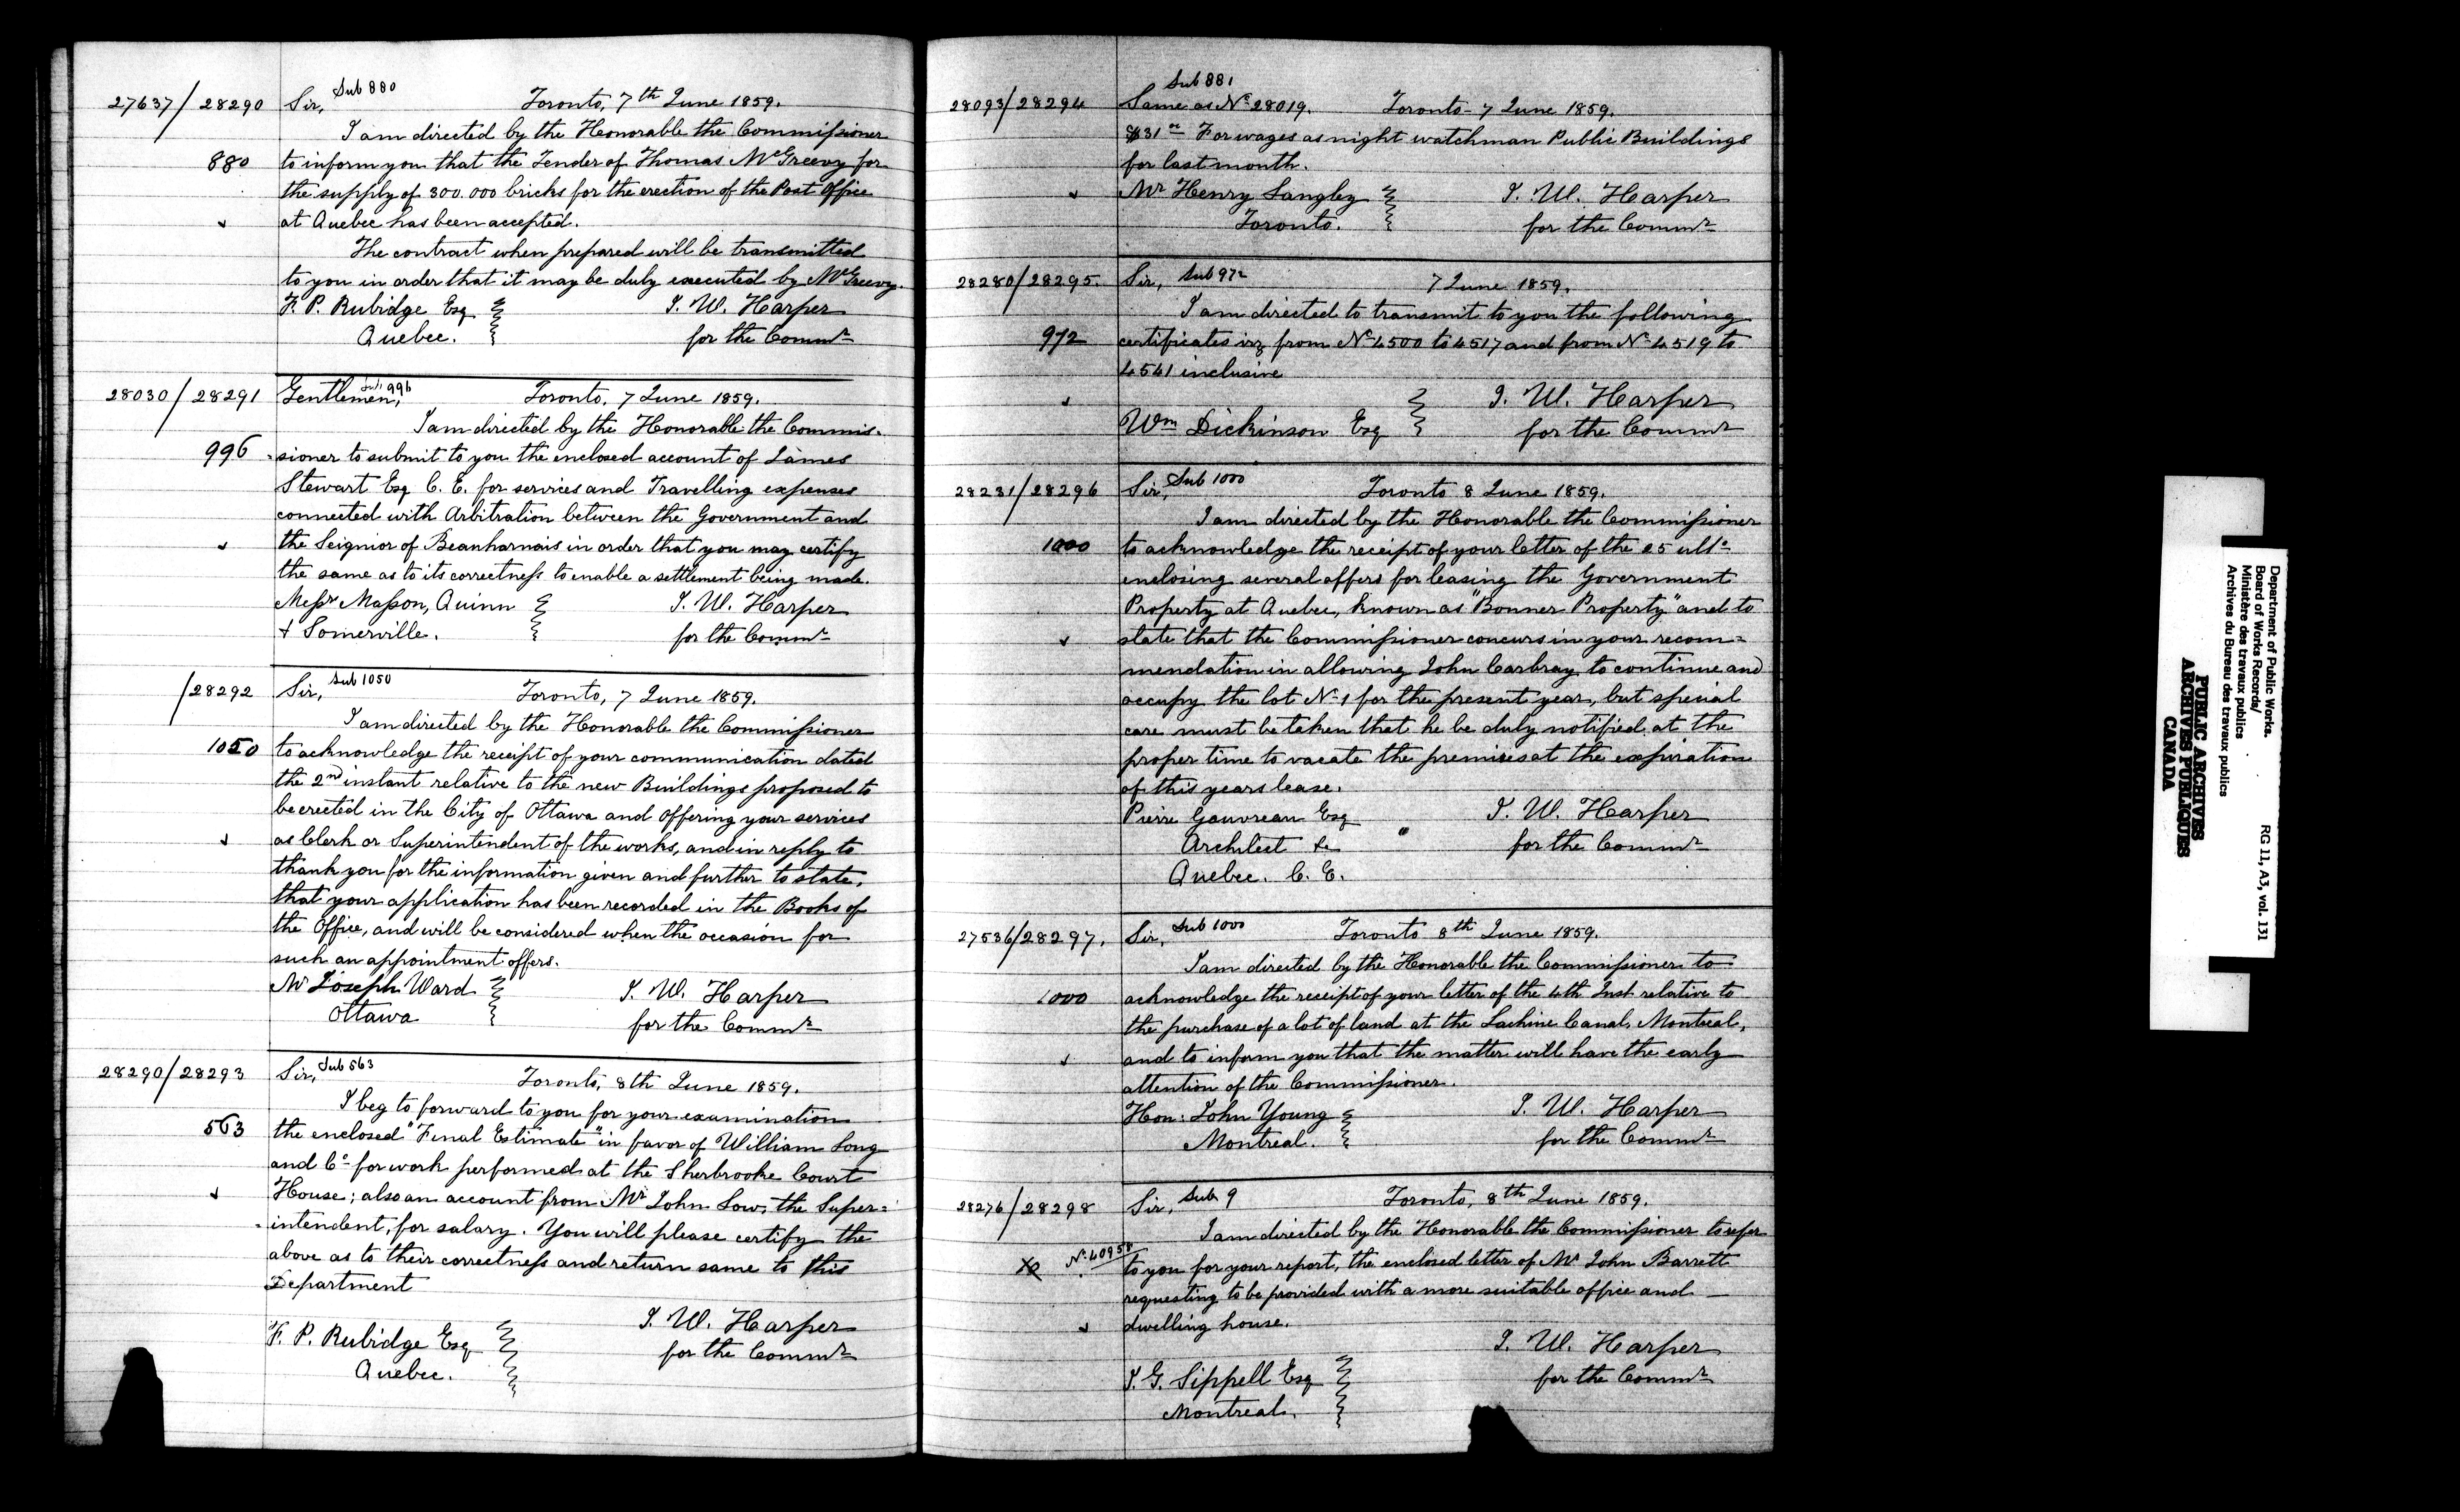 27637/28290 Sir, Sub 880 Toronto, 7th June 1859.
I am directed by the Honorable the Commissioner
880 to inform you that the Tender of Thomas McGreevy for
the supply of 300.000 bricks for the erection of the Post Office
at Quebec has been accepted.
The contract when prepared will be transmitted
to you in order that it may be duly executed by McGreevy.
F. P. Rubidge Esq J. W. Harper
Quebec. for the Commr
28030/28291 Gentlemen, Sub 996 Toronto, 7 June 1859.
I am directed by the Honorable the Commis-
996 -sioner to submit to you the enclosed account of James
Stewart Esq C. E. for services and Travelling expenses
connected with Arbitration between the Government and
the Seignior of Beauharnais in order that you may certify
the same as to its correctness to enable a settlement being made.
Messrs Masson, Quinn J. W. Harper
& Somerville. for the Commr
/28292 Sir, Sub 1050 Toronto, 7 June 1859.
I am directed by the Honorable the Commissioner
1050 to acknowledge the receipt of your communication dated
the 2nd instant relative to the new Buildings proposed to
be erected in the City of Ottawa and offering your services
as Clerk or Superintendent of the works, and in reply to
thank you for the information given and further to state,
that your application has been recorded in the Books of
the Office, and will be considered when the occasion for
such an appointment offers.
Mr Joseph Ward J. W. Harper
Ottawa for the Commr
28290/28293 Sir, Sub 563 Toronto, 8th June 1859.
I beg to forward to you for your examination
563 the enclosed "Final Estimate" in favor of William Long
and Co for work performed at the Sherbrooke Court
House; also an account from Mr John Low, the Super=
-intendent, for salary. You will please certify the
above as to their correctness and return same to this
Department
F. P. Rubidge Esq J. W. Harper
Quebec. for the Commr
Sub 881
28093/28294 Same as No 28019. Toronto - 7 June 1859.
$31 00 For wages as night watchman Public Buildings
for last month.
Mr Henry Langley J. W. Harper
Toronto. for the Commr
28280/28295. Sir, Sub 972 7 June 1859.
I am directed to transmit to you the following
972 certificates viz from No 4500 to 4517 and from No 4519 to
4541 inclusive
J. W. Harper
Wm Dickinson Esq for the Commr
28231/28296 Sir, Sub 1000 Toronto 8 June 1859.
I am directed by the Honorable the Commissioner
1000 to acknowledge the receipt of your letter of the 25 ulto
enclosing several offers for leasing the Government
Property at Quebec, known as "Bonner Property" and to
state that the Commissioner concurs in your recom=
mendation in allowing John Carbray to continue and
occupy the lot No 1 for the present year, but special
care must be taken that he be duly notified at the
proper time to vacate the premises at the expiration
of this years lease.
Pierre Gauvreau Esq J. W. Harper
Architect &c " for the Commr
Quebec. C. E.
27536/28297. Sir, Sub 1000 Toronto 8th June 1859.
I am directed by the Honorable the Commissioner to
1000 acknowledge the receipt of your letter of the 4th Inst relative to
the purchase of a lot of land at the Lachine Canal, Montreal,
and to inform you that the matter will have the early
attention of the Commissioner.
Hon: John Young J. W. Harper
Montreal. for the Commr
28276/28298 Sir, Sub 9 Toronto, 8th June 1859.
I am directed by the Honorable the Commissioner to refer
No 40958 to you for your report, the enclosed letter of Mr John Barrett
requesting to be provided with a more suitable office and —
dwelling house.
J. W. Harper
J. G. Sippell Esq for the Commr
Montreal.
Department of Public Works.
Board of Works Records/
Ministère des travaux publics
Archives du Bureau des travaux publics
RG 11, A3, vol. 131
PUBLIC ARCHIVES
ARCHIVES PUBLIQUES
CANADA